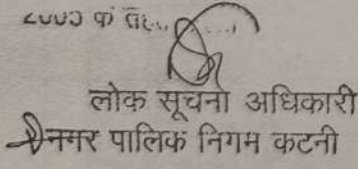 2005 के
लोक सूचना अधिकारी
नगर पालिक निगम कटनी